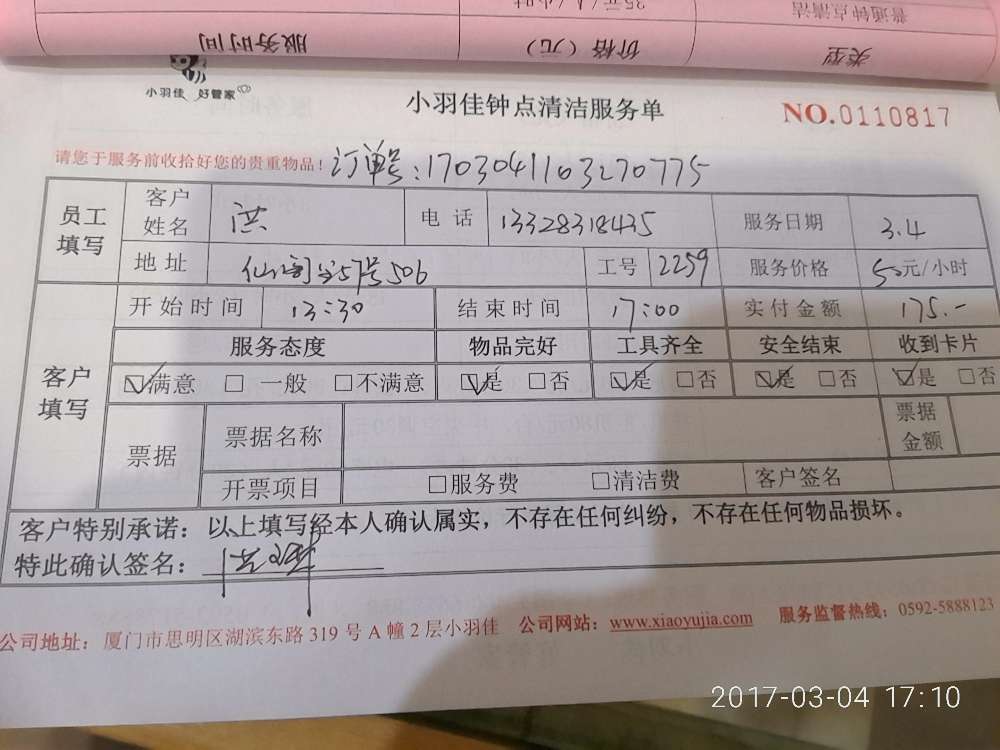 普通钟点清洁 35元/人/小时
类型 价格（元） 服务时间
小羽佳 好管家
小羽佳钟点清洁服务单
NO.0110817
请您于服务前收拾好您的贵重物品！ 订单号:1703041103270775
员工填写 客户姓名 洪 电话 13328318435 服务日期 3.4
地址 仙阁里57号506 工号 2259 服务价格 50元/小时
客户填写 开始时间 13:30 结束时间 17:00 实付金额 175.-
服务态度 物品完好 工具齐全 安全结束 收到卡片
☑满意 □一般 □不满意 ☑是 □否 ☑是 □否 ☑是 □否 ☑是 □否
票据 票据名称 票据金额
开票项目 □服务费 □清洁费 客户签名
客户特别承诺：以上填写经本人确认属实，不存在任何纠纷，不存在任何物品损坏。
特此确认签名：
公司地址：厦门市思明区湖滨东路 319 号 A 幢 2 层小羽佳 公司网站：www.xiaoyujia.com 服务监督热线：0592-5888123
2017-03-04 17:10